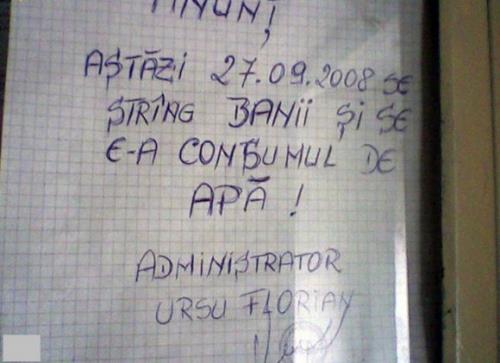 ANUNȚ
AȘTĂZI 27.09.2008 SE
ȘTRÎNG BANII ȘI SE
E-A CONȘUMUL DE
APĂ !
ADMINIȘTRATOR
URSU FLORIAN